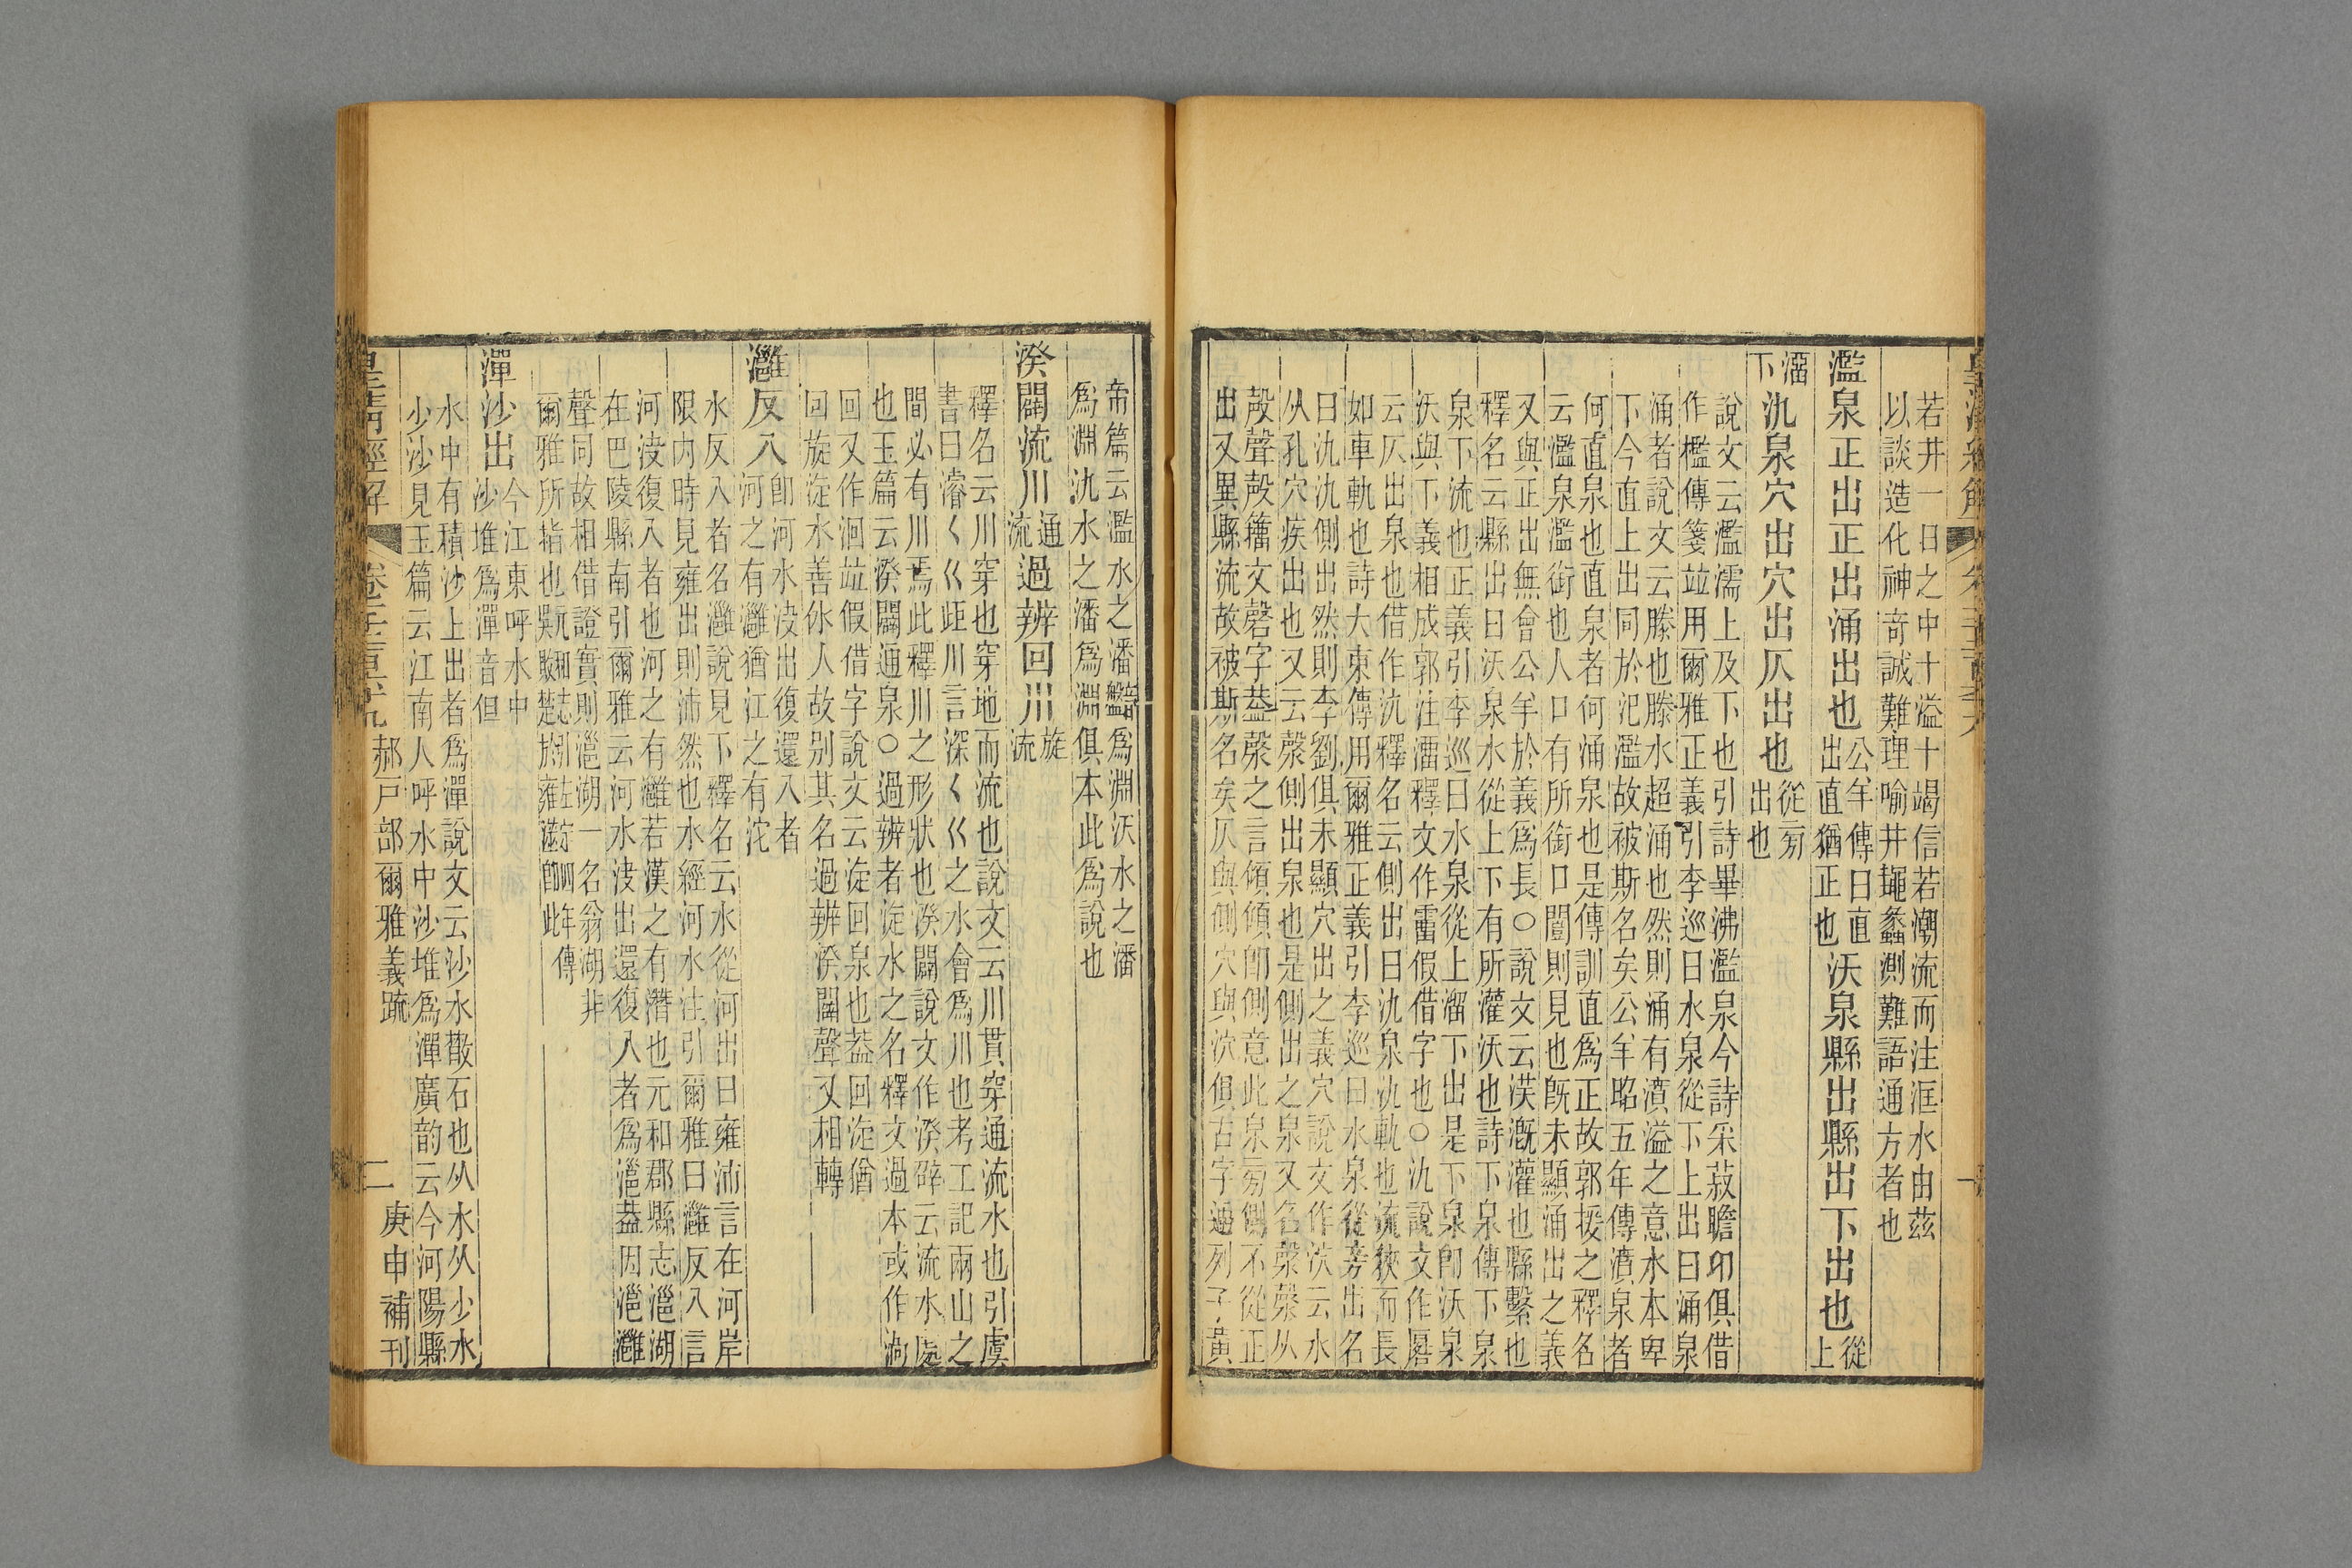 若井一日之中十溢十竭信若潮流而注洭水由茲
以談造化神奇誠難理喻井䵷蠡測難語通方者也
濫泉正出正出涌出也公羊傳曰直出直猶正也沃泉縣出縣出下出也從上
溜下氿泉穴出穴出仄出也從㫄出也
說文云濫濡上及下也引詩畢沸濫泉今詩采菽瞻卬俱借
作檻傳箋竝用爾雅正義引李巡曰水泉從下上出曰涌泉
涌者說文云滕也滕水超涌也然則涌有濆溢之意水本卑
下今直上出同於汜濫故被斯名矣公羊昭五年傳濆泉者
何直泉也直泉者何涌泉也是傳訓直爲正故郭援之釋名
云濫泉濫銜也人口有所銜口闓則見也旣未顯涌出之義
又與正出無會公羊於義爲長○說文云渶漑灌也縣繫也
釋名云縣出曰沃泉水從上下有所灌沃也詩下泉傳下泉
泉下流也正義引李巡曰水泉從上溜下出是下泉卽沃泉
沃與下義相成郭注溜釋文作霤假借字也○氿說文作厬
云仄出泉也借作氿釋名云側出曰氿泉氿軌也流狹而長
如車軌也詩大東傳用爾雅正義引李巡曰水泉從旁出名
曰氿氿側出然則李劉俱未顯穴出之義穴說文作泬云水
从孔穴疾出也又云漀側出泉也是側出之泉又名漀漀从
殸聲殸籒文磬字葢漀之言傾傾卽側意此泉㫄側不從正
出又異縣流故被斯名矣仄與側穴與泬俱古字通列子黃
帝篇云濫水之潘爲淵沃水之潘
爲淵氿水之潘爲淵俱本此爲說也
湀闢流川通流過辨回川旋流
釋名云川穿也穿地而流也說文云川貫穿通流水也引虞
書曰濬𡿨巜歫川言深𡿨巜之水會爲川也考工記兩山之
間必有川焉此釋川之形狀也湀闢說文作湀辟云流水處
也玉篇云湀闢通泉○過辨者淀水之名釋文過本或作渦
回又作洄竝假借字說文云淀回泉也葢回淀猶
回旋淀水善休人故别其名過辨湀闢聲又相轉
灉反入卽河水決出復還入者河之有灉猶江之有沱
水反入者名灉說見下釋名云水從河出曰雍沛言在河岸
限内時見雍出則沛然也水經河水注引爾雅曰灉反入言
河決復入者也河之有灉若漢之有濳也元和郡縣志㴩湖
在巴陵縣南引爾雅云河水決出還復入者爲㴩葢因㴩灉
聲同故相借證實則㴩湖一名翁湖非
爾雅所指也
潬沙出今江東呼水中沙堆爲潬音但
水中有積沙上出者爲潬說文云沙水散石也从水从少水
少沙見玉篇云江南人呼水中沙堆爲潬廣韵云今河陽縣
皇淸經解
郝戸部爾雅義疏
二
庚申補刊